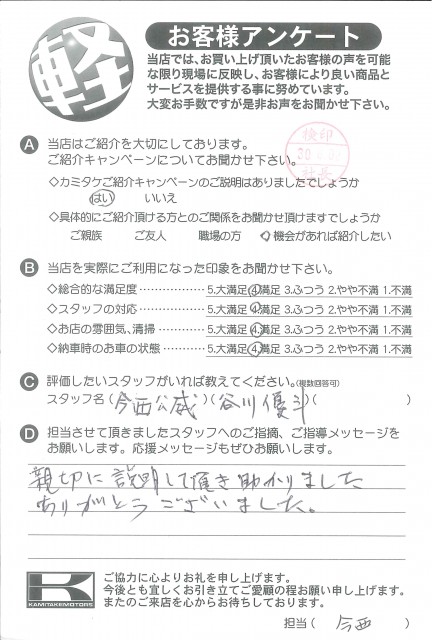 軽
お客様アンケート
当店では、お買い上げ頂いたお客様の声を可能
な限り現場に反映し、お客様により良い商品と
サービスを提供する事に努めています。
大変お手数ですが是非お声をお聞かせ下さい。
A 当店はご紹介を大切にしております。
ご紹介キャンペーンについてお聞かせ下さい。
検印
社長
◇カミタケご紹介キャンペーンのご説明はありましたでしょうか
はい いいえ
◇具体的にご紹介頂ける方とのご関係をお聞かせ頂けますでしょうか
ご親族 ご友人 職場の方 機会があれば紹介したい
B 当店を実際にご利用になった印象をお聞かせ下さい。
◇総合的な満足度 5.大満足 4.満足 3.ふつう 2.やや不満 1.不満
◇スタッフの対応 5.大満足 4.満足 3.ふつう 2.やや不満 1.不満
◇お店の雰囲気、清掃 5.大満足 4.満足 3.ふつう 2.やや不満 1.不満
◇納車時のお車の状態 5.大満足 4.満足 3.ふつう 2.やや不満 1.不満
C 評価したいスタッフがいれば教えてください。(複数回答可)
スタッフ名(今西公威)(谷川優斗)( )
D 担当させて頂きましたスタッフへのご指摘、ご指導メッセージを
お願いします。応援メッセージもぜひお願いします。
親切に説明して頂き助かりました
ありがとうございました。
K
KAMITAKEMOTORS
ご協力に心よりお礼を申し上げます。
今後とも宜しくお引き立てご愛顧の程お願い申し上げます。
またのご来店を心からお待ちしております。
担当( 今西 )